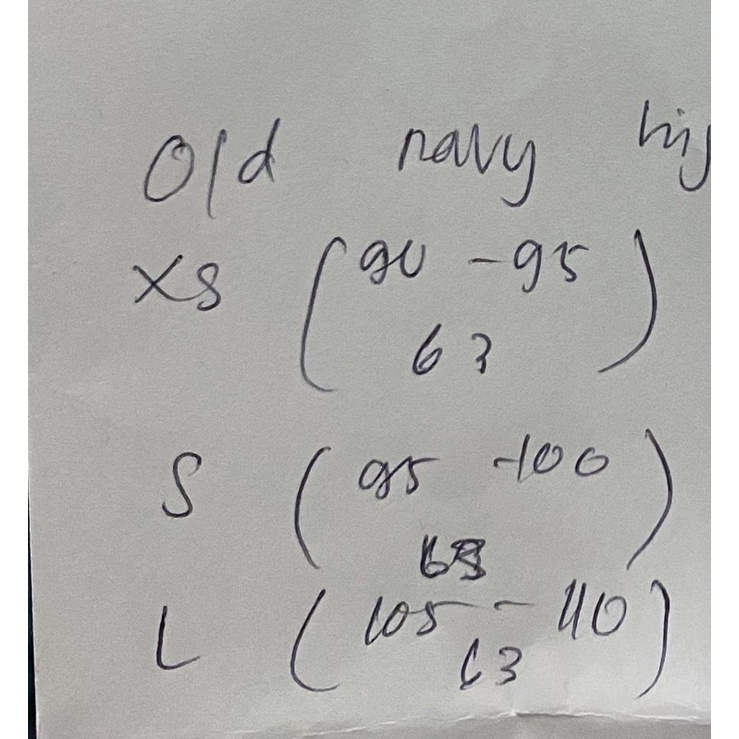 Old navy
XS (90 - 95
63)
S (95 - 100
63)
L (105 - 110
63)